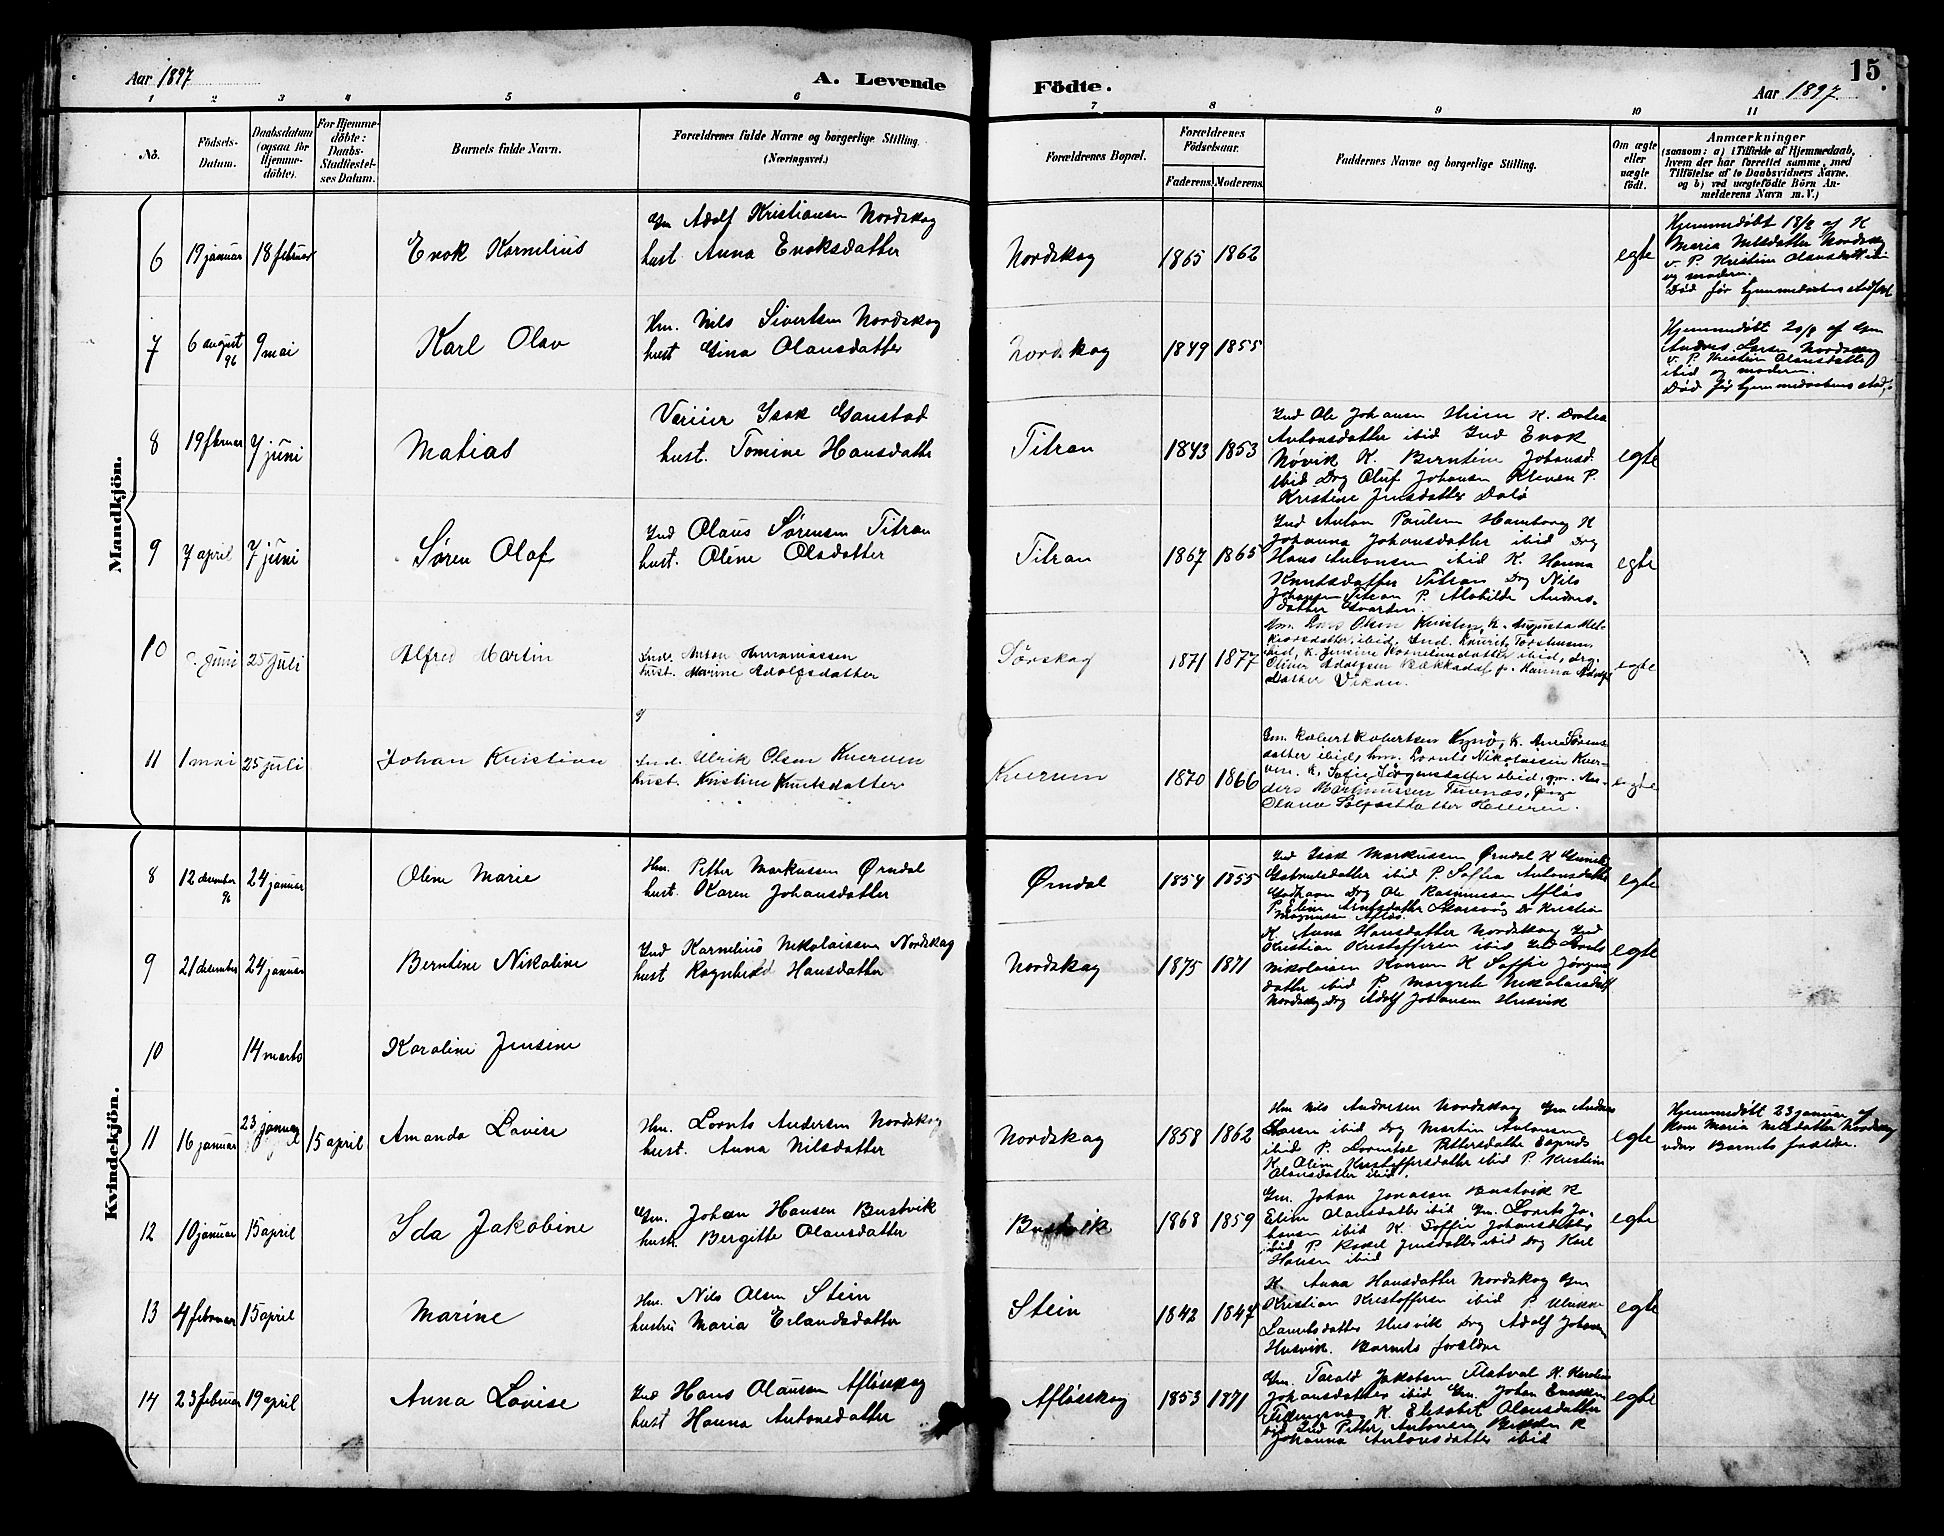 Aar 1897
A. Levende Födte.
Aar 1897
15
1 2 3 4 5 6 7 8 9 10 11
No.
Födsels-
Datum.
Daabsdatum
(ogsaa for
Hjemme-
döbte).
For Hjemme-
döbte:
Daabs-
Stadfæstel-
ses Datum.
Barnets fulde Navn.
Forældrenes fulde Navne og borgerlige Stilling
(Næringsvei.)
Forældrenes Bopæl.
Forældrenes
Födselsaar.
Faderens. Moderens.
Faddernes Navne og borgerlige Stilling.
Om ægte
eller
uægte
født.
Anmærkninger
(saasom: a) i Tilfælde af Hjemmedaab,
hvem der har forrettet samme, med
Tilföielse af to Daabsvidners Navne.
og b) ved uægtefödte Börn An-
melderens Navn m. V.)
Mandkjön.
6 19 januar 18 februar Enok Kornelius
Gm Adolf Kristiansen Nordskag
hust. Anna Enoksdatter
Nordskag 1865 1862 egte
Hjemmedøbt 18/2 af K
Maria Nilsdatter Nordskag
v. P. Kristine Olausdatter
og moderen.
Død før hjemmedaabens stadfest
7 6 august 96 9 mai Karl Olav
Hm. Nils Sivertsen Nordskag
hust Gina Olausdatter
Nordskag 1849 1855
Hjemmedøbt 20/8 af Gm
Anders Larsen Nordskag
v. P. Kristine Olausdatter
ibid og moderen.
Død før hjemmedaabens stadf.
8 19 februar 7 juni Matias
Isak Ganstad
hust. Tomine Hansdatter
Titran 1843 1853 egte
Ind Ole Johansen Heim K. Dortea
Antonsdatter ibid Ind Enok
Nøvik K. Berntine Johansd.
ibid Drg Oluf Johansen Kleven P.
Kristine Jensdatter Dalø
9 7 april 7 juni Søren Olaf
Ind Olaus Sørensen Titran
hust. Oline Olsdatter
Titran 1867 1865 egte
Ind Anton Paulsen Hamborg K
Johanna Johansdatter ibid Drg
Hans Antonsen ibid K. Hanna
Knutsdatter Titran Drg Nils
Johansen Titran P. Matilde Anders-
datter
10 juni 25 juli Alfred Martin
Ind. Anton
hust. Marine Adolfsdatter
Sørskag 1871 1877 egte
Gm. Olsen K. Augusta Mel-
kiorsdatter, ibid. Ind. Laurits Torstensen
ibid, K. Jensine Korneliusdatter ibid, drg.
Oliver Adolfsen Bækkadal p. Hanna Adolfs
datter Vikan.
11 1 mai 25 juli Johan Kristian
Ind. Ulrik Olsen Kverum
hust. Kristine Knutsdatter
Kverum 1870 1866 egte
Gm. Robert Robertsen K. Ane Sørens-
datter ibid, hm. Lornts Nikolaisen Kver-
um. K. Sofie Jørgensdatter ibid, gm. An-
ders Markussen pige
Olava Salfestdatter
Kvindekjön.
8 12 desember 96 24 januar Oline Marie
Hm. Petter Markussen Ørndal
hust. Karen Johansdatter
Ørndal 1854 1855 egte
Ind Isak Markussen Ørndal K
Gabrielsdatter ibid P. Sofia Antonsdatter
Drg Ole Rasmussen Afløs
P. Eline Arntsdatter Drg Kristian
Magnussen Afløs.
9 21 desember 24 januar Berntine Nikoline
Ind Kornelius Nikolaisen Nordskag
hust Ragnhild Hansdatter
Nordskag 1875 1871 egte
K. Anna Hansdatter Nordskag Ind
Kristian Kristoffersen ibid Ind Lornts
Nikolaisen Kverum K Soffie Jørgens-
datter ibid P. Margrete Nikolaisdatt
Nordskag Drg Adolf Johansen Husvik
10 14 marts Karoline Jensine
11 16 januar 23 januar 15 april Amanda Lovise
Hm. Lornts Andersen Nordskag
hust. Anna Nilsdatter
Nordskag 1858 1862 egte
Hm Nils Andresen Nordskag Gm Anders
Larsen ibid Drg Martin Antonsen
ibid P. Lorentse Pettersdatter
K. Oline Kristoffersdatter ibid P. Kristine
Olausdatter ibid.
Hjemmedøbt 23 januar af
Kone Maria Nilsdatter Nordskag
vidner Barnets forældre.
12 10 januar 15 april Ida Jakobine
Gm. Johan Hansen Bustvik
hust. Bergitte Olausdatter
Bustvik 1868 1859 egte
Gm. Johan Jonasen Bustvik K
Eline Olausdatter ibid Gm. Lornts Jo-
hansen ibid K. Soffie Johansdatter
ibid P. Rakel Jensdatter ibid Drg Karl
Hansen ibid
13 4 februar 15 april Marine
Hm. Nils Olsen Stein
hustru Maria Erlandsdatter
Stein 1842 1847 egte
K. Anna Hansdatter Nordskag Gm
Kristian Kristoffersen ibid P. Ulrikke
Lauritsdatter Husvik Drg Adolf Johansen
Husvik. Barnets forældre
14 23 februar 19 april Anna Lovise
Ind Hans Olausen Afløsskag
hust Hanna Antonsdatter
Afløsskag 1853 1871 egte
Gm. Tarald Jakobsen Flatval K. Karoline
Johansdatter ibid Gm. Johan
K. Elisabet Olausdatter
ibid Ind Petter Antonsen K
Johanna Antonsdatter ibid